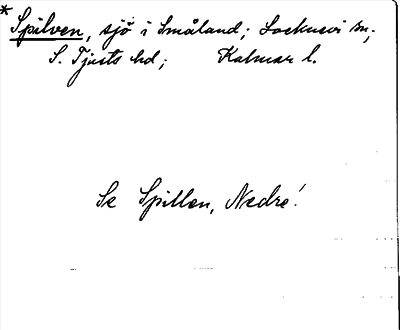 * Spilven, sjö i Småland; Locknevi sn,;
S. Tjusts hd; Kalmar l.
Se Spillen, Nedre!